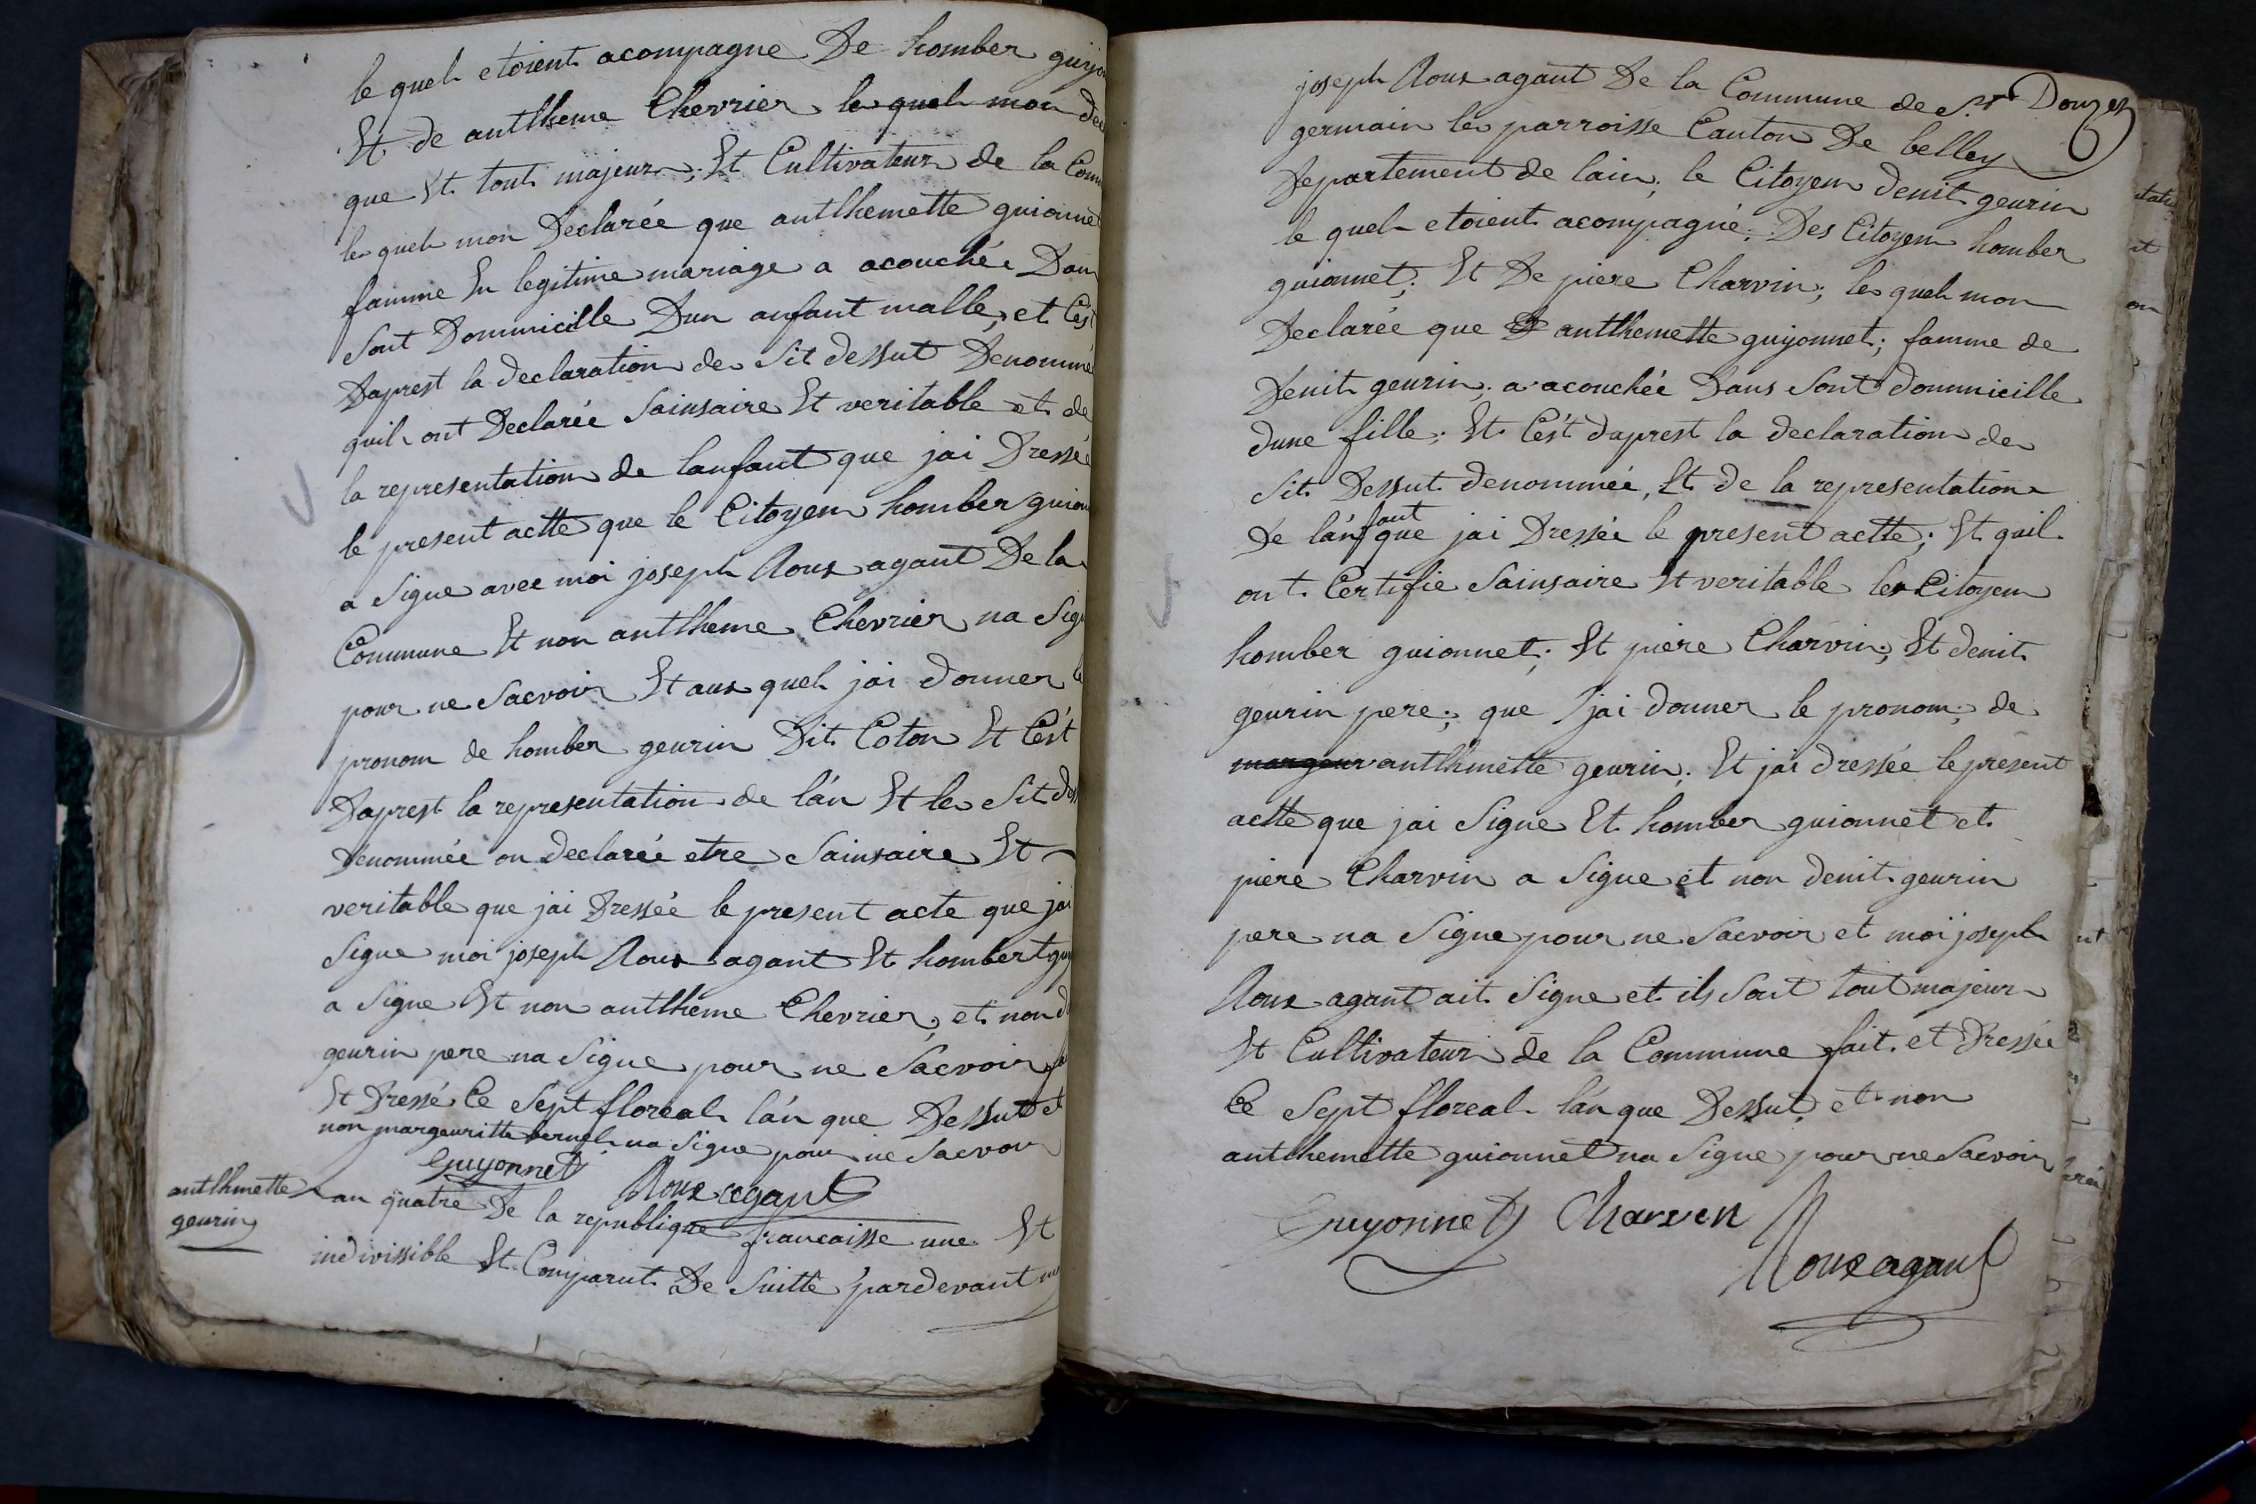 le quel etoient acompagne De homber guyo
Et de antlheme Chevrier le quel mon de
que Et tout majeur; Et Cultivateur de la Com
le quel mon Declarée que antlhemette guionne
famme En legitime mariage a acouchée Dan
Sont Dommicille Dun anfant malle, et Cest
Daprest la declaration de Sit dessut Denommé
quil ont Declarée Sainsaire Et veritable et de
la representation de lanfant que jai Dressée
le present actte que le Citoyen homber guion
a Signe avec moi joseph Roux agant De la
Commune Et non antlheme Chevrier na Sig
pour ne Sacvoir Et aux quel jai donner le
pronom de homber geurin Dit Coton Et Cést
Daprest la representation de lán Et le Sit des
Denommée on declarée etre Sainsaire Et
veritable que jai Dressée le present acte que jai
Signe moi joseph Roux agant Et hombert guy
a Signe Et non antlheme Chevrier, et non d
geurin pere na Signe pour ne Sacvoir fa
Et Dressé Ce Sept floreal lán que Dessut et
non margeuritte bernel na Signe pour ne Sacvoir
Guyonnet Roux agant
antlhmette
geurin
an quatre De la republique francaisse une Et
indivissible Et Comparut De Suitte pardevant
joseph Roux agant De la Commune de St Douzer
germain les parroisse Canton De belley
Departement de lain; le Citoyen denit geurin
le quel etoient acompagné; Des Citoyem homber
guionnet; Et De piere Charvin; les quel mon
Declarée que antlhemette guyonnet; famme de
Denit geurin; a acouchée Dans Sont dommicille
dune fille; Et Cést daprest la declaration de
Sit Dessut denommée, Et de la representation
De lánfant que jai Dressée le present actte; Et quil
ont Certifie Sainsaire Et veritable les Citoyem
homber guionnet; Et piere Charvin; Et denit
geurin pere; que jai donner le pronom; de
margeur antlhmette geurin; Et jai dressée le present
actte que jai Signe Et homber guionnet et
piere Charvin a Signe et non denit geurin
pere na Signe pour ne Sacvoir et moi joseph
Roux agant ait Signe et ils Sont tout majeur
Et Cultivateur de la Commune fait et Dressée
Ce Sept floreal lán que Dessut; et non
antchemette guionnet na Signe pour ne Sacvoir
Guyonnet Charven
Roux agant